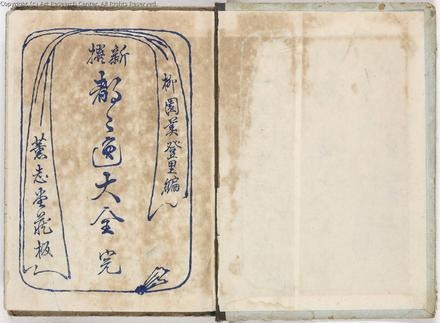 Copyright (c) Art Research Center, All Rights Reserved.
柳園美登里編
新撰
都々逸大全 完
藏板